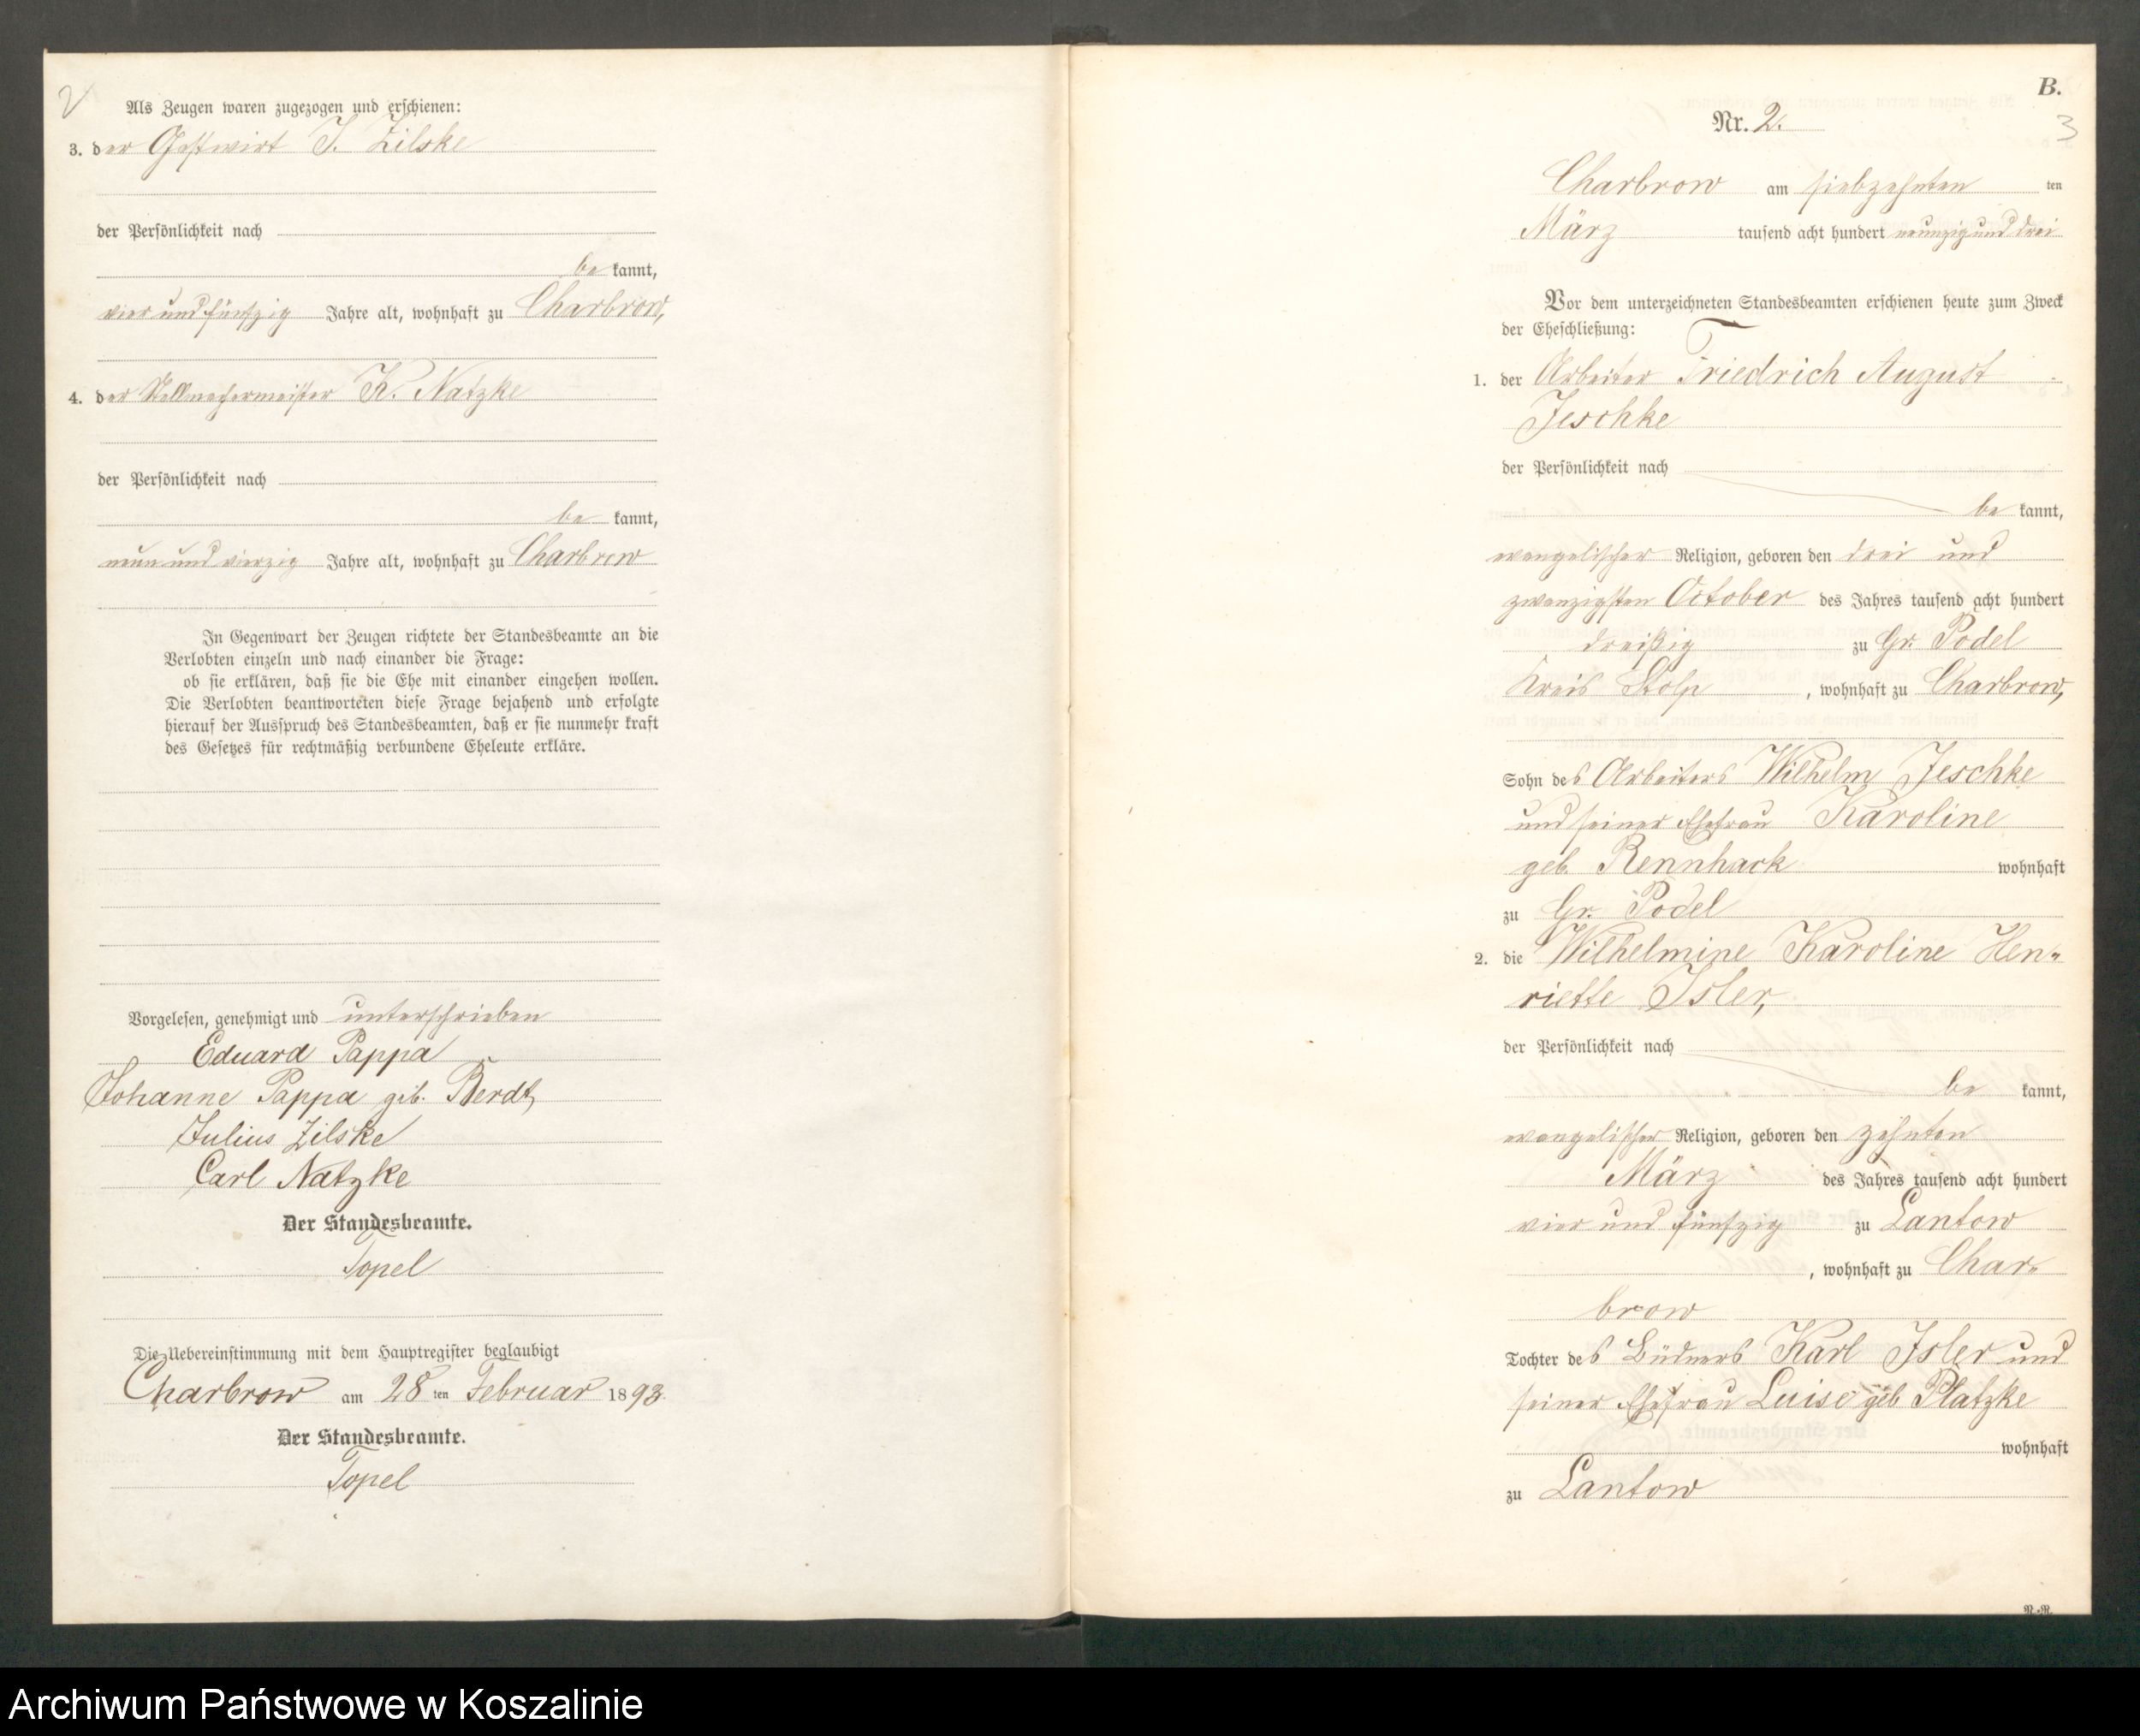 2
Als Zeugen waren zugezogen und erschienen:
3. der Gastwirt J. Zilske
der Persönlichkeit nach
be kannt,
vier und fünfzig Jahre alt, wohnhaft zu Charbrow,
4. der Stellmachermeister K. Natzke
der Persönlichkeit nach
be kannt,
neun und vierzig Jahre alt, wohnhaft zu Charbrow
In Gegenwart der Zeugen richtete der Standesbeamte an die
Verlobten einzeln und nach einander die Frage:
ob sie erklären, daß sie die Ehe mit einander eingehen wollen.
Die Verlobten beantworteten diese Frage bejahend und erfolgte
hierauf der Ausspruch des Standesbeamten, daß er sie nunmehr kraft
des Gesetzes für rechtmäßig verbundene Eheleute erkläre.
Vorgelesen, genehmigt und unterschrieben
Eduard Pappa
Johanne Pappa geb. Berdt
Julius Zilske
Carl Natzke
Der Standesbeamte.
Topel
Die Uebereinstimmung mit dem Hauptregister beglaubigt
Charbrow am 28 ten Februar 1893.
Der Standesbeamte.
Topel
B.
Nr. 2.
3
Charbrow am siebzehnten ten
März tausend acht hundert neunzig und drei
Vor dem unterzeichneten Standesbeamten erschienen heute zum Zweck
der Eheschließung:
1. der Arbeiter Friedrich August
Jeschke
der Persönlichkeit nach
be kannt,
evangelischer Religion, geboren den drei und
zwanzigsten October des Jahres tausend acht hundert
dreißig zu Gr. Podel
Kreis Stolp, wohnhaft zu Charbrow,
Sohn des Arbeiters Wilhelm Jeschke
und seiner Ehefrau Karoline
geb. Rennhack wohnhaft
zu Gr. Podel
2. die Wilhelmine Karoline Hen-
riette Isler,
der Persönlichkeit nach
be kannt,
evangelischer Religion, geboren den zehnten
März des Jahres tausend acht hundert
vier und fünfzig zu Lantow
, wohnhaft zu Char-
brow
Tochter des Büdners Karl Isler und
seiner Ehefrau Luise geb Platzke
wohnhaft
zu Lantow
R.-R.
Archiwum Państwowe w Koszalinie